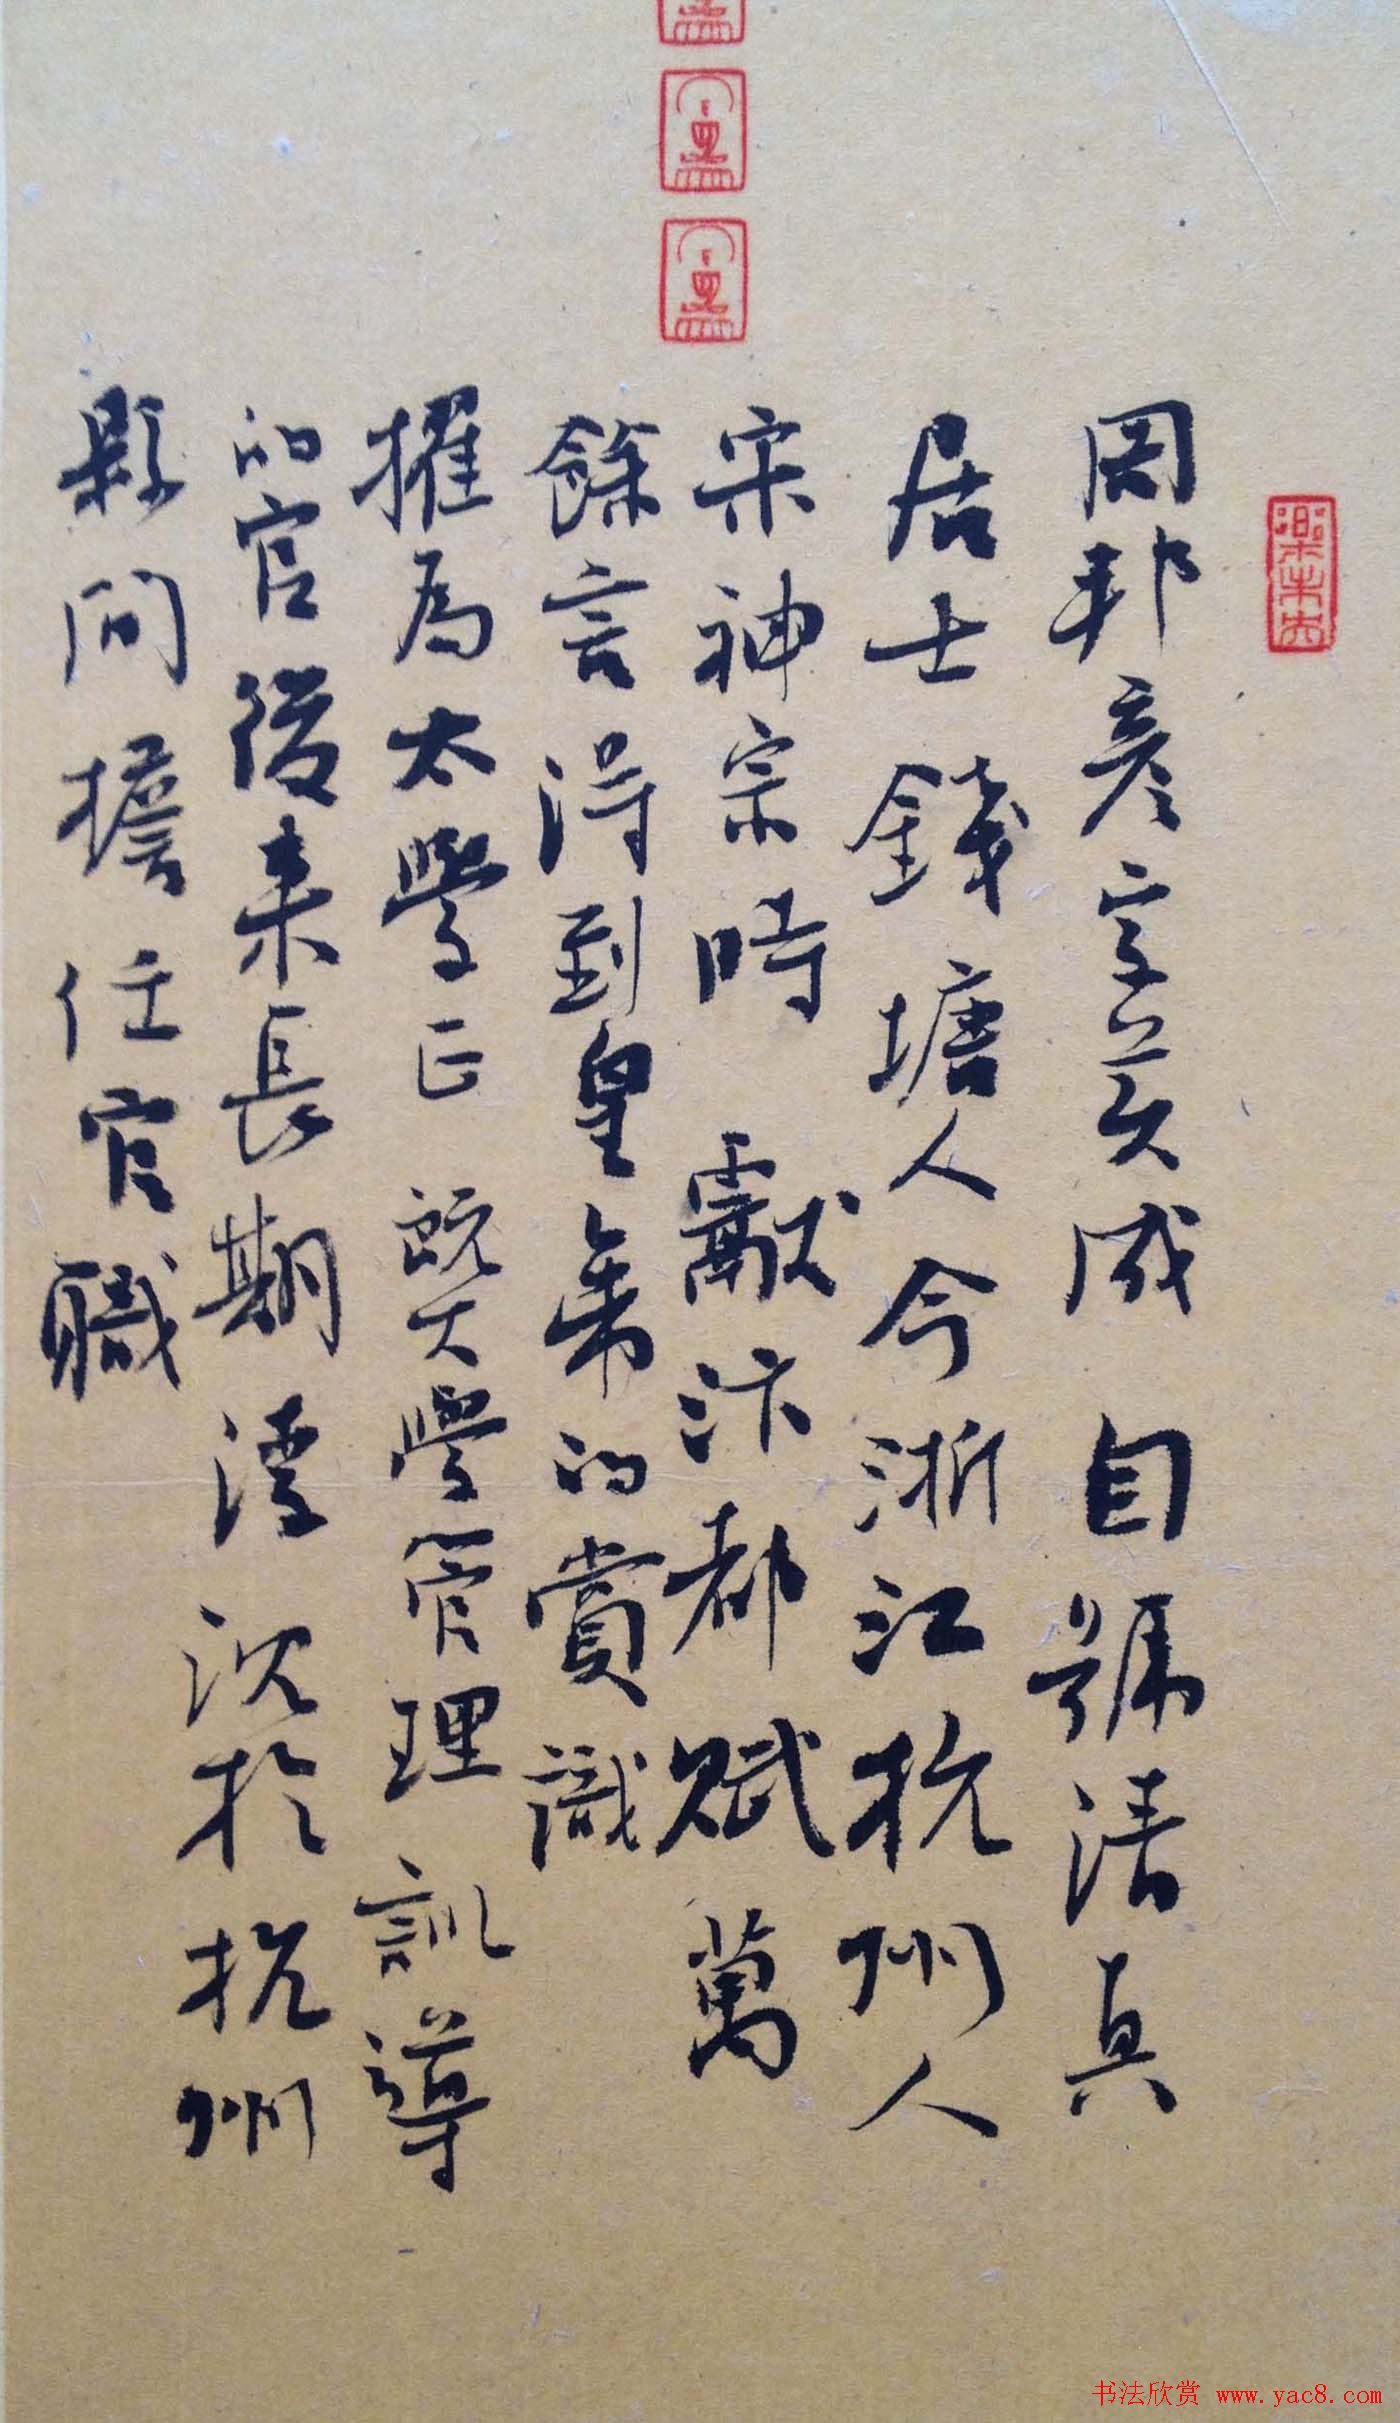 周邦彥字美成 自號清真
居士錢塘人今浙江杭州人
宋神宗時 獻汴都賦萬
餘言得到皇帝的賞識
擢為太學正 既大學管理訓導
的官後来長期浮沈於杭州
縣間擔任官職
樂未央
书法欣赏 www.yac8.com